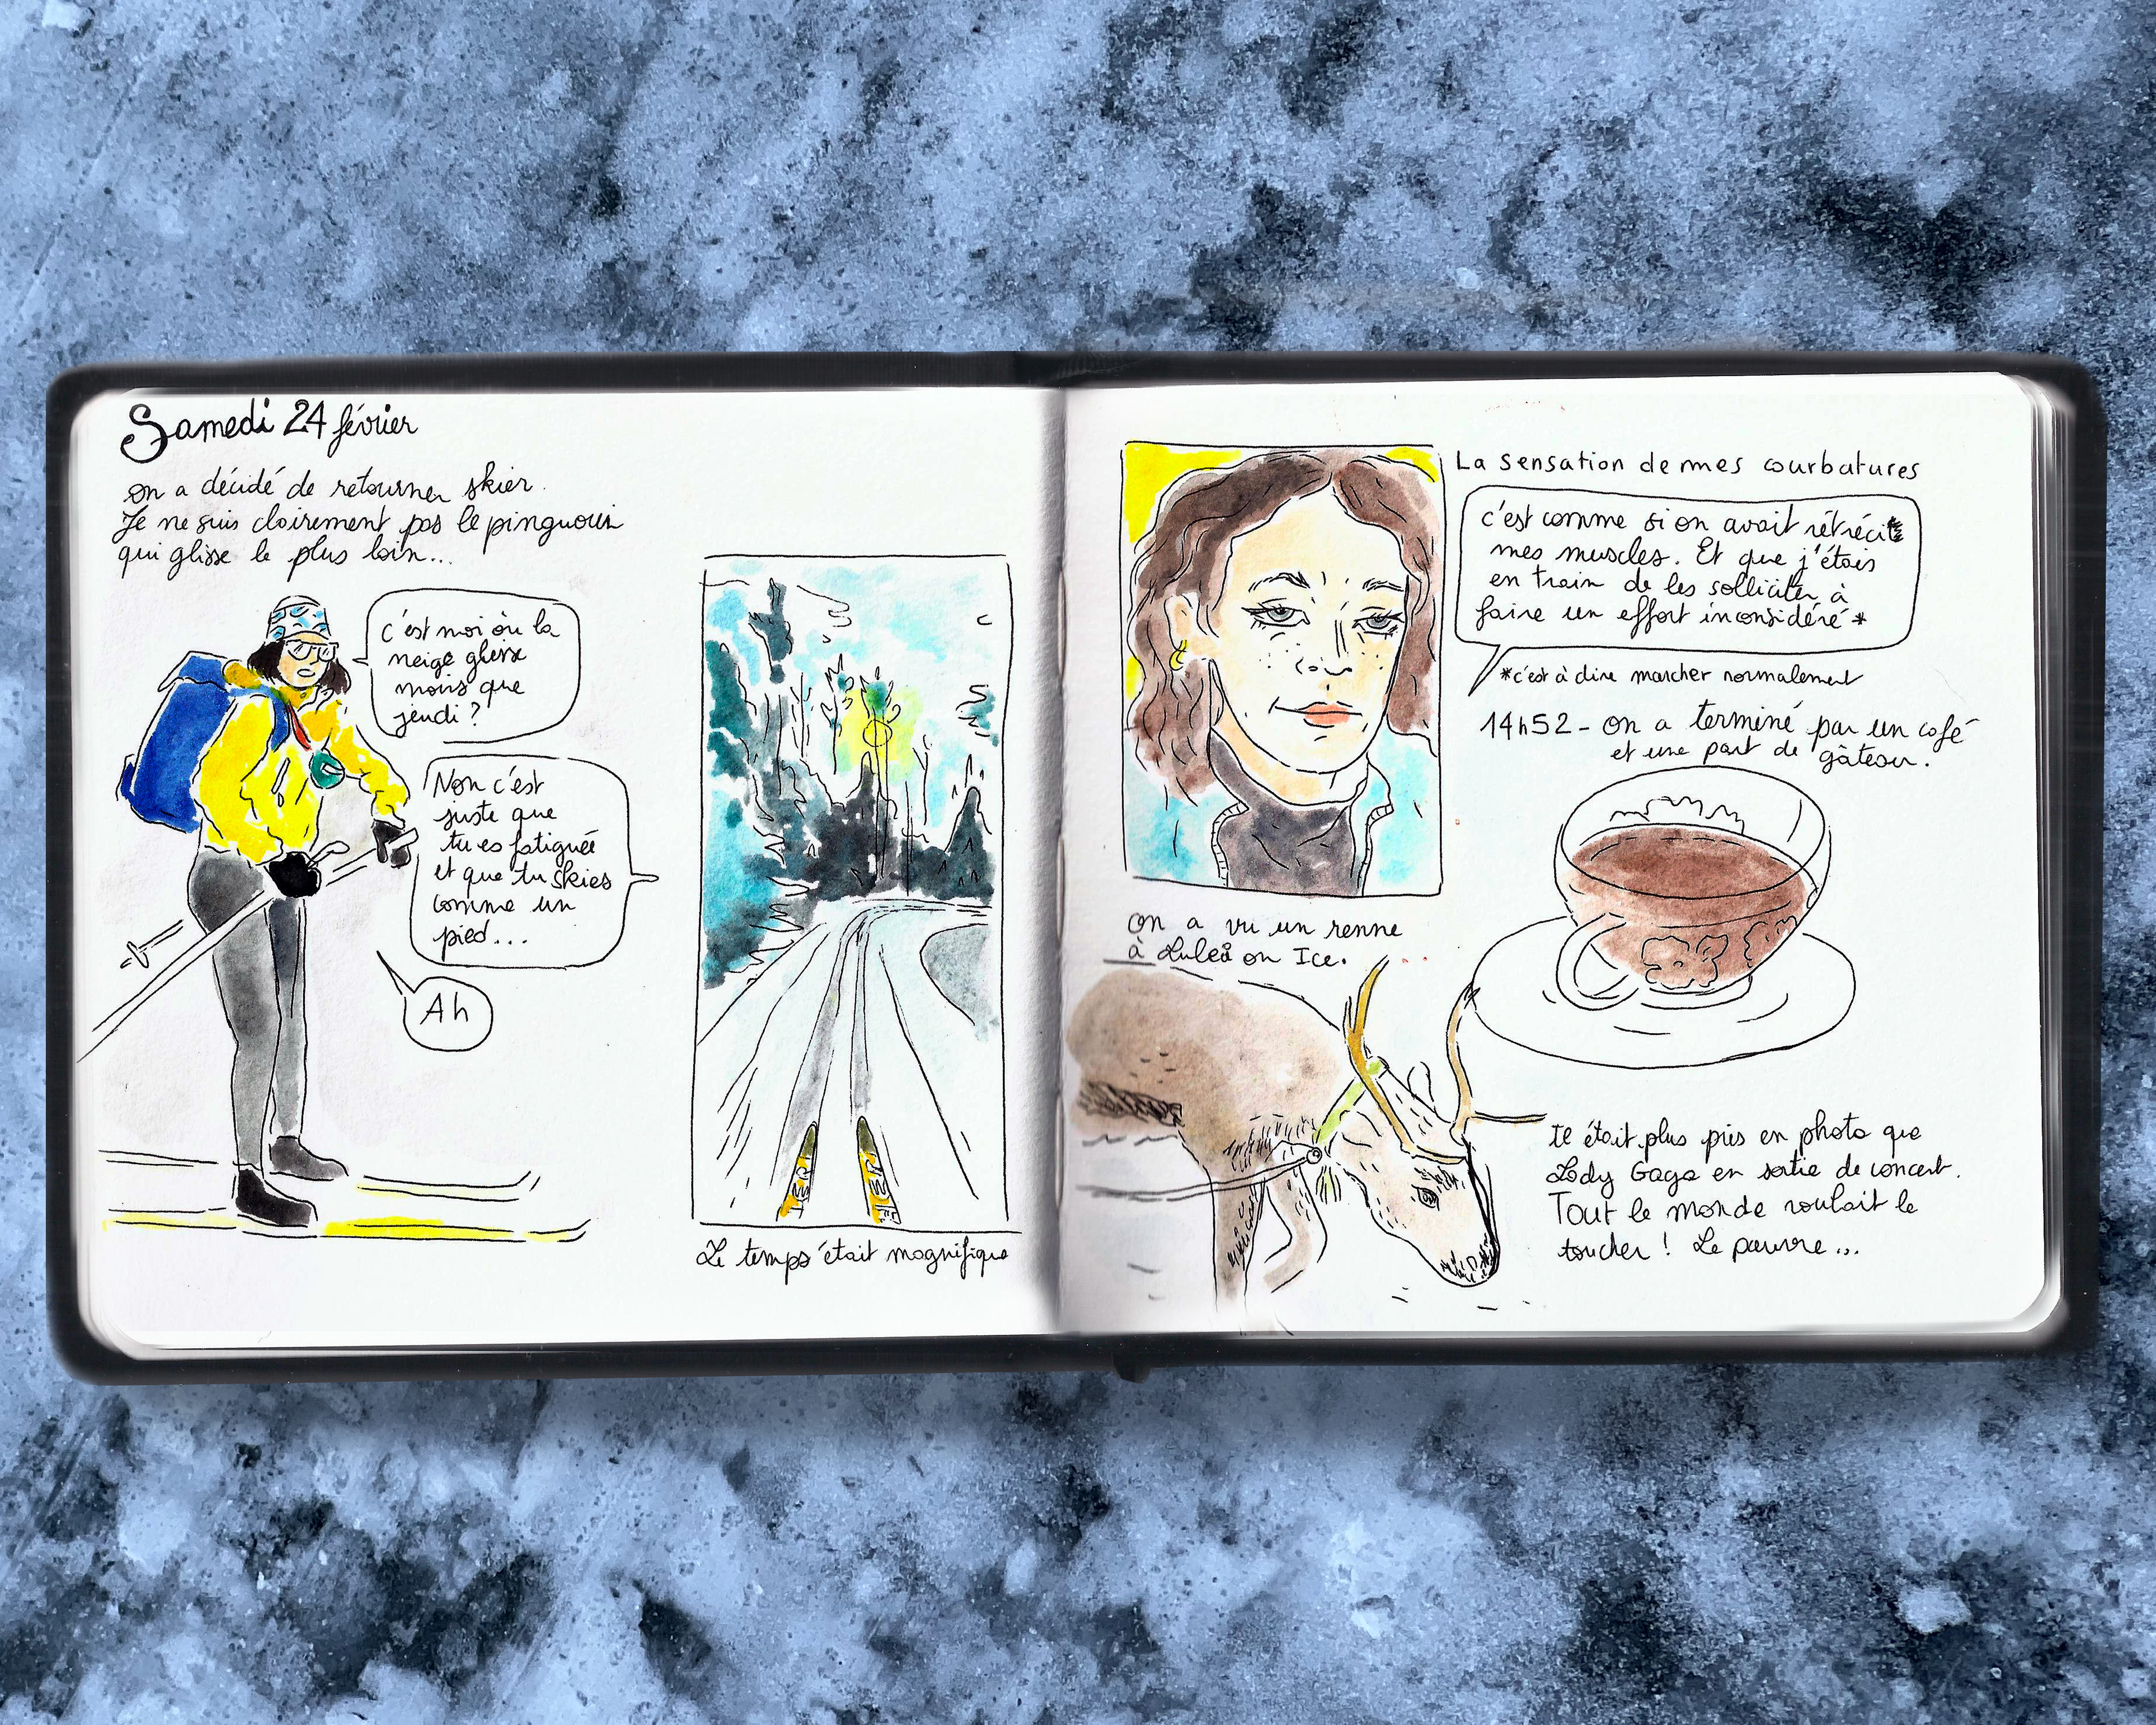 Samedi 24 février
on a décidé de retourner skier.
Je ne suis clairement pas le pingouin
qui glisse le plus loin...
c'est moi où la
neige glisse
moins que
jeudi ?
Non c'est
juste que
tu es fatiguée
et que tu skies
comme un
pied...
Ah
Le temps était magnifique
La sensation de mes courbatures
c'est comme si on avait rétréci
mes muscles. Et que j'étais
en train de les solliciter à
faire un effort inconsidéré *
*c'est à dire marcher normalement
14h52 - on a terminé par un café
et une part de gâteau.
on a vu un renne
à Luleå on Ice.
Il était plus pris en photo que
Lady Gaga en sortie de concert.
Tout le monde voulait le
toucher ! Le pauvre...